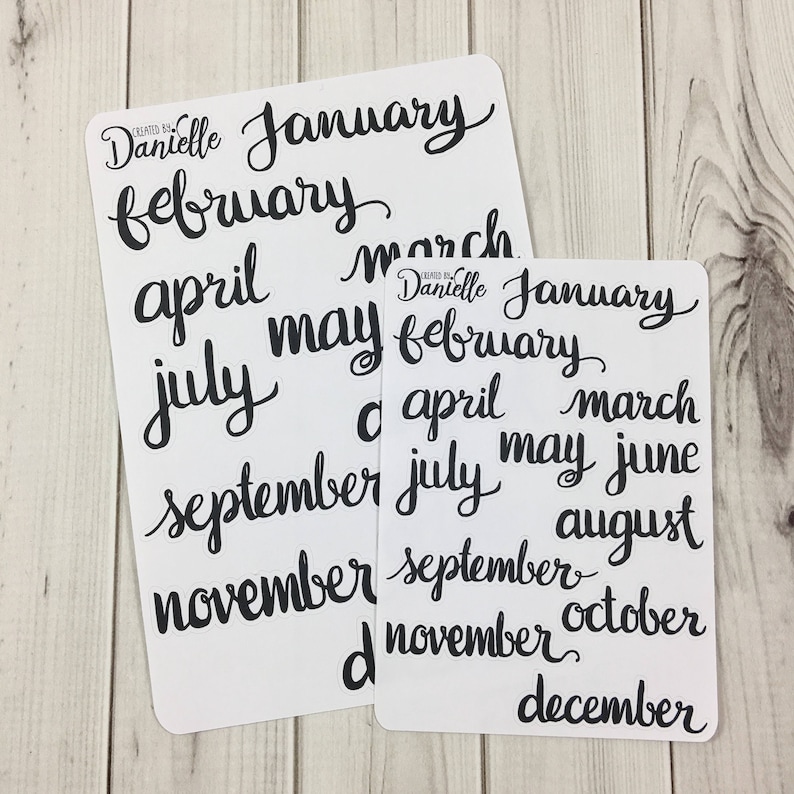 CREATED BY:
Danielle
January
february
march
april
may
july
september
november
CREATED BY:
Danielle
January
february
april
march
may june
july
august
september
october
november
december